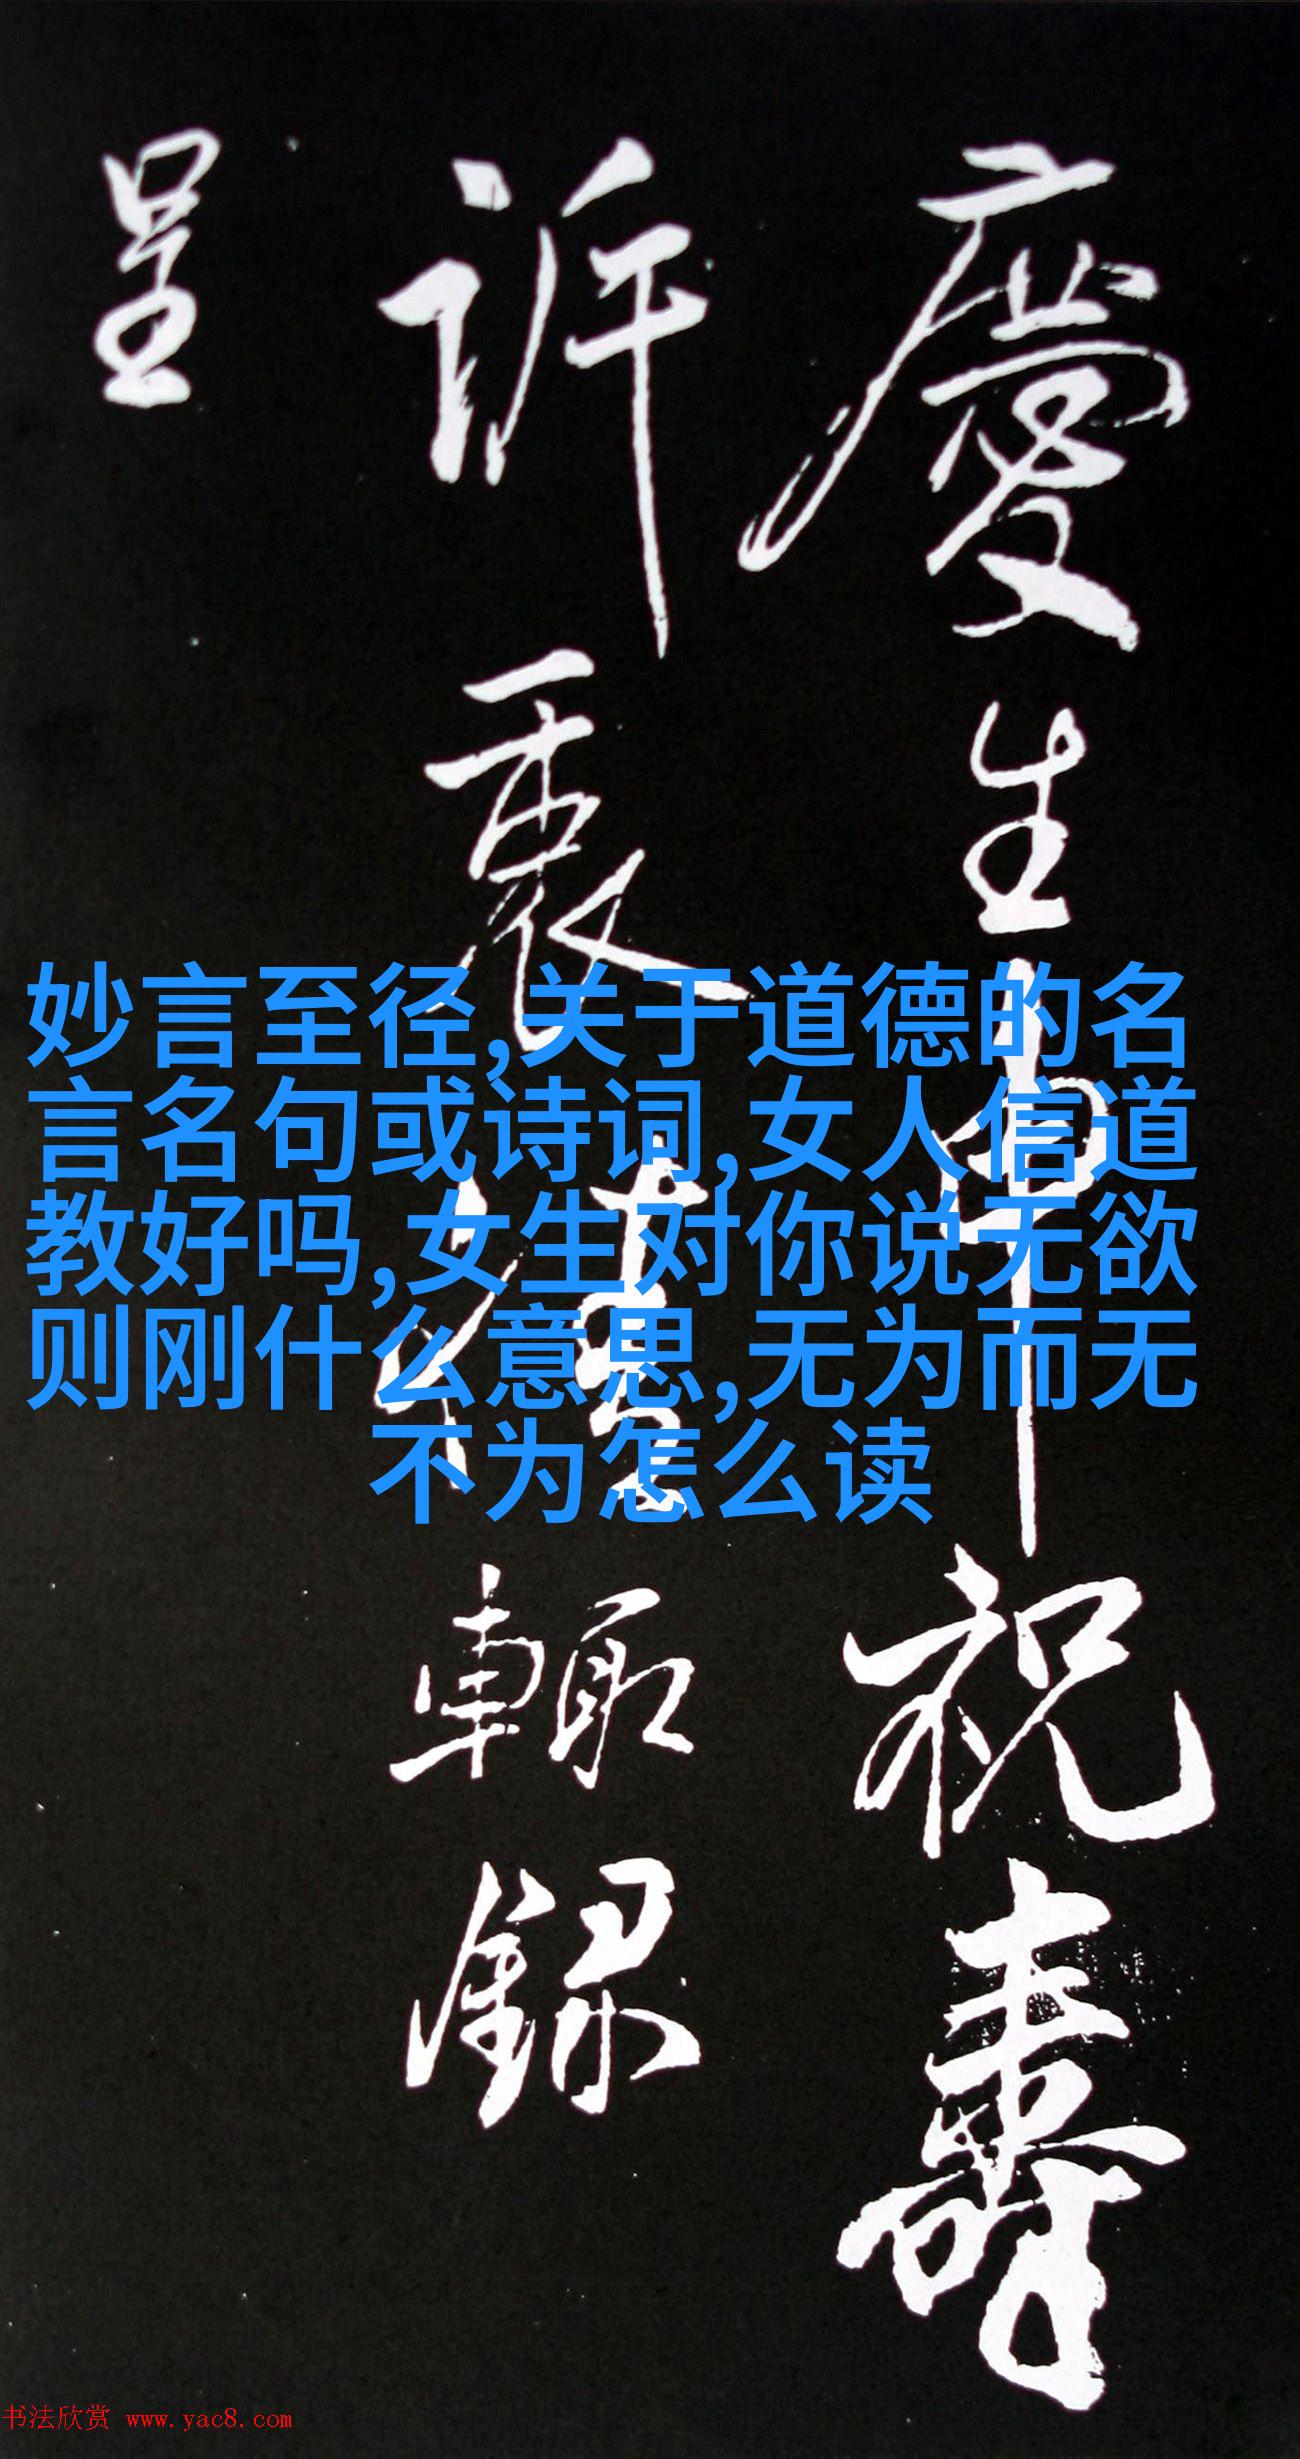 慶生申祝壽
訴衷情輒録
呈
妙言至径,关于道德的名
言名句或诗词,女人信道
教好吗,女生对你说无欲
则刚什么意思,无为而无
不为怎么读
书法欣赏 www.yac8.com